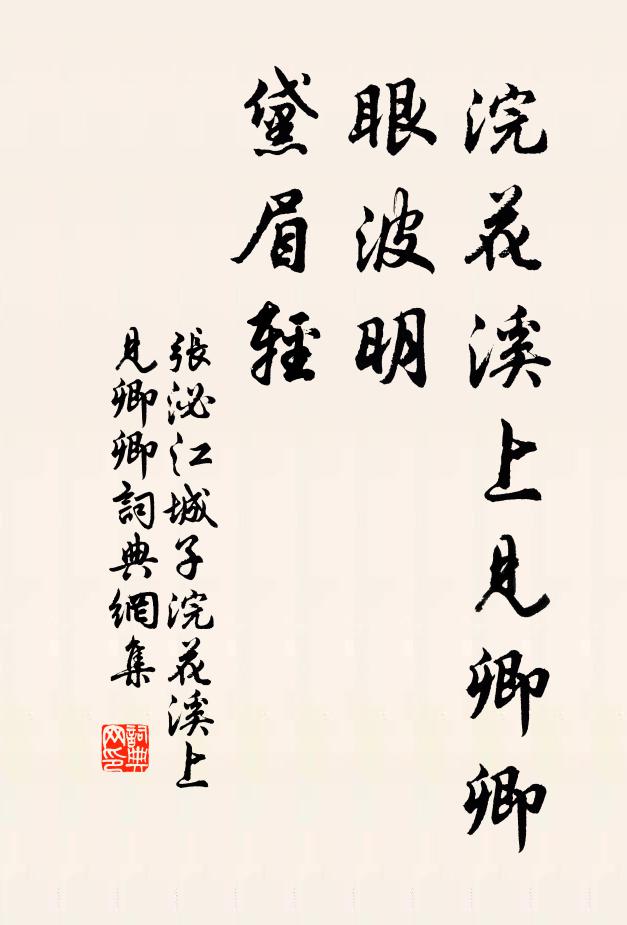 浣花溪上見卿卿
眼波明
黛眉輕
張泌江城子浣花溪上
見卿卿詞典網集
詞典网印